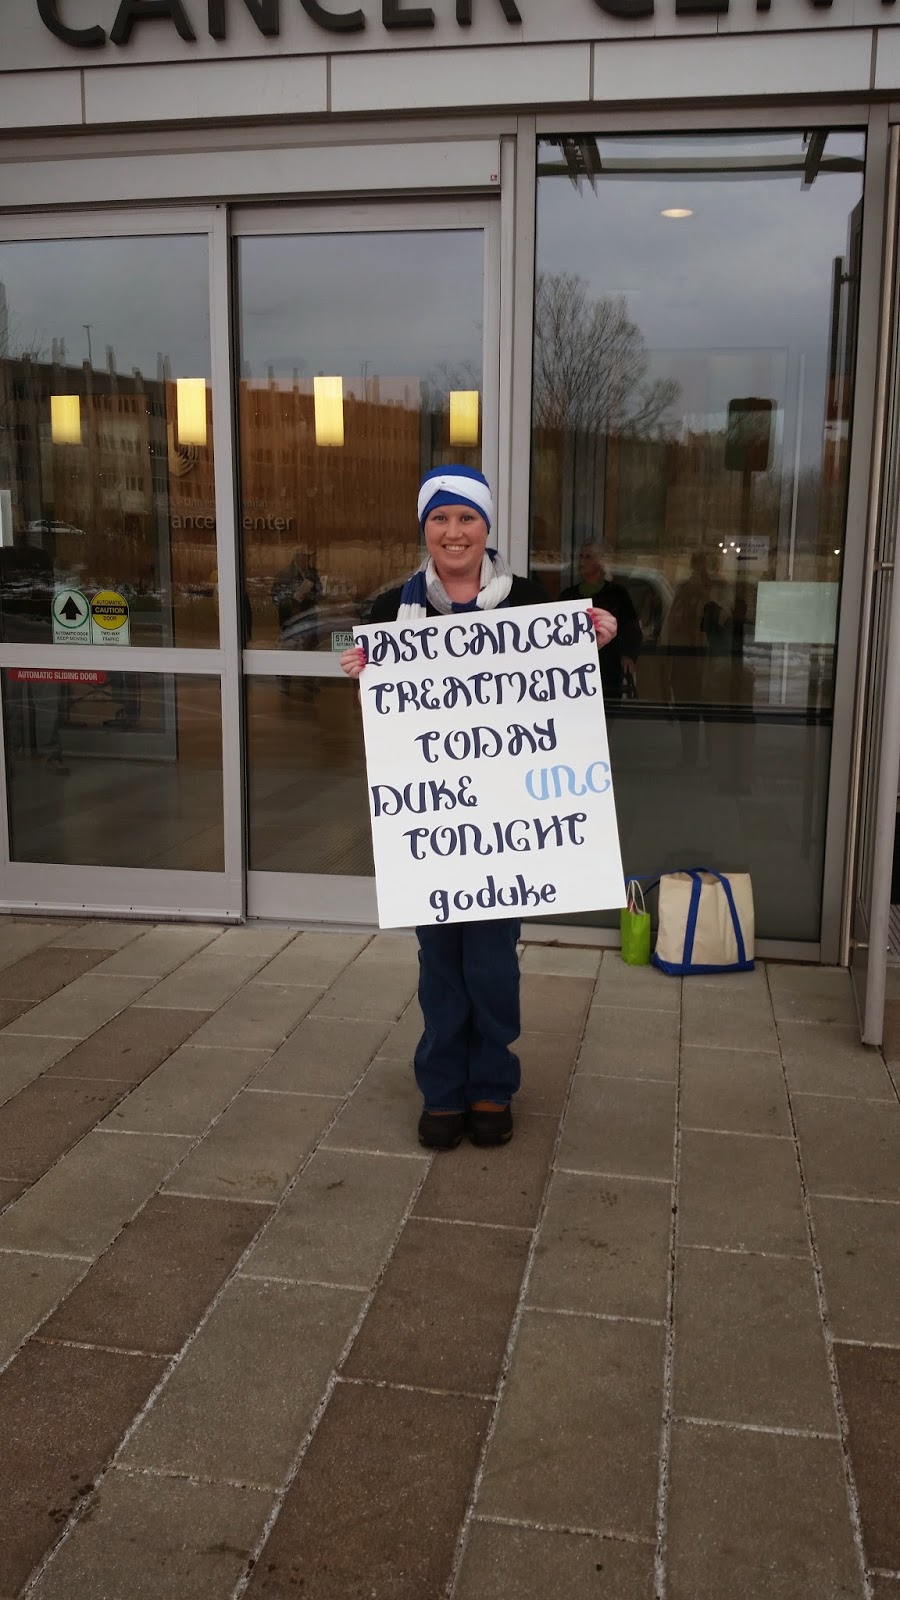 CANCER CEN
Cancer Center
AUTOMATIC DOOR
KEEP MOVING
AUTOMATIC
CAUTION
DOOR
TWO-WAY
TRAFFIC
STAN
AUTOMATIC SLIDING DOOR
LAST CANCER
TREATMENT
TODAY
DUKE UNC
TONIGHT
goduke